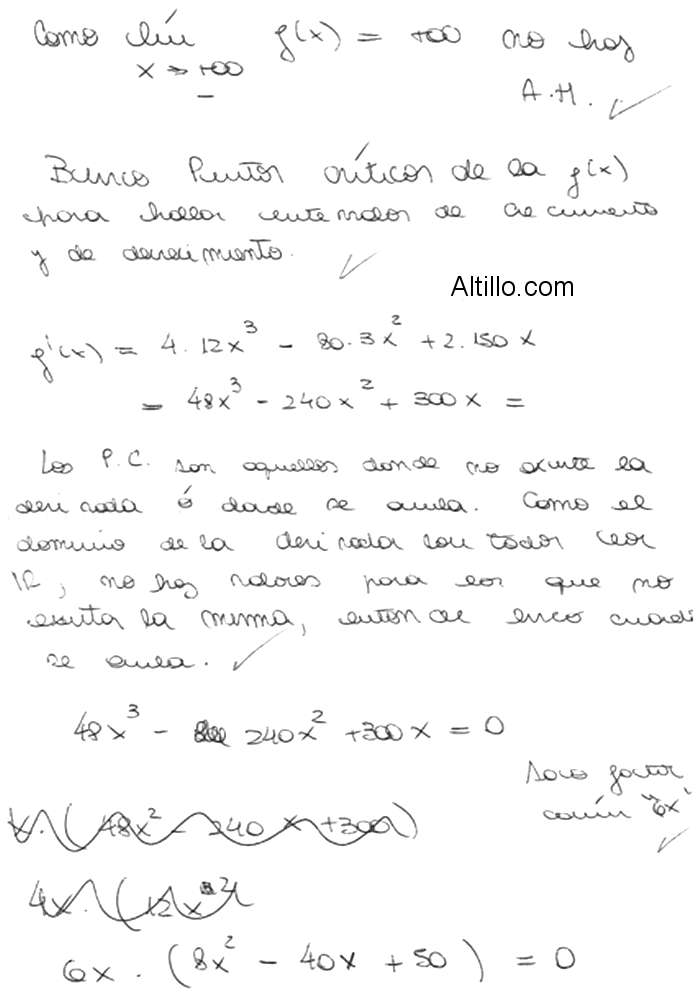 Como lím g(x) = +∞ no hay
x → +∞
–
A.H.
Busco Puntos críticos de la g(x)
para hallar intervalos de crecimiento
y de decrecimiento.
Altillo.com
g'(x) = 4.12x³ - 80.3x² + 2.150x
= 48x³ - 240x² + 300x =
Los P.C. son aquellos donde no existe la
derivada ó donde se anula. Como el
dominio de la derivada son todos los
IR, no hay valores para los que no
exista la misma, entonces busco cuando
se anula.
48x³ - 240x² + 300x = 0
Saco factor
común "6x"
x. (48x² - 240x + 300)
4x. (12x²
6x . (8x² - 40x + 50) = 0